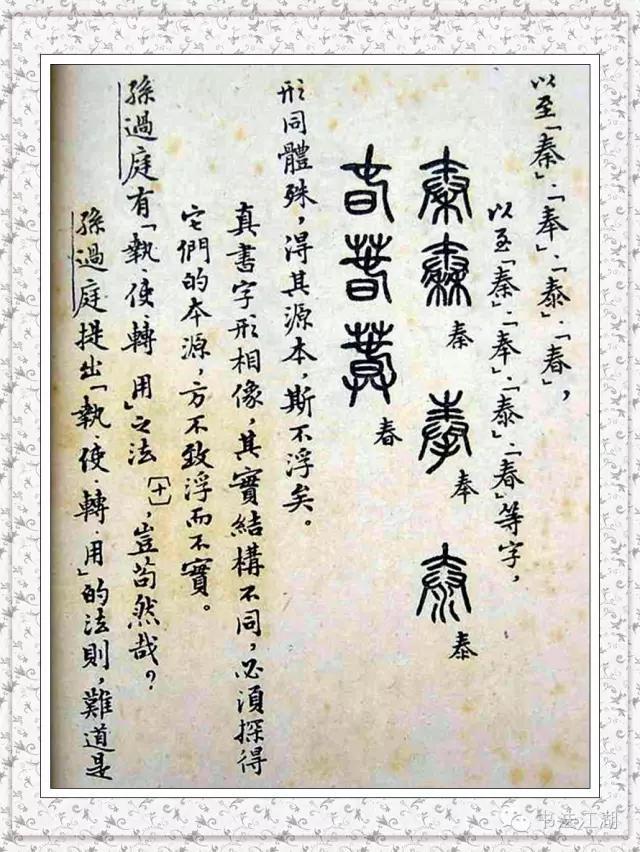 以至「秦」·「奉」·「泰」·「春」，
以至「秦」·「奉」·「泰」·「春」等字，
秦 奉 泰
春
形同體殊，得其源本，斯不浮矣。
真書字形相像，其實結構不同，必須探得
它們的本源，方不致浮而不實。
孫過庭有「執·使·轉·用」之法〔十〕，豈苟然哉？
孫過庭提出「執·使·轉·用」的法則，難道是
书法江湖